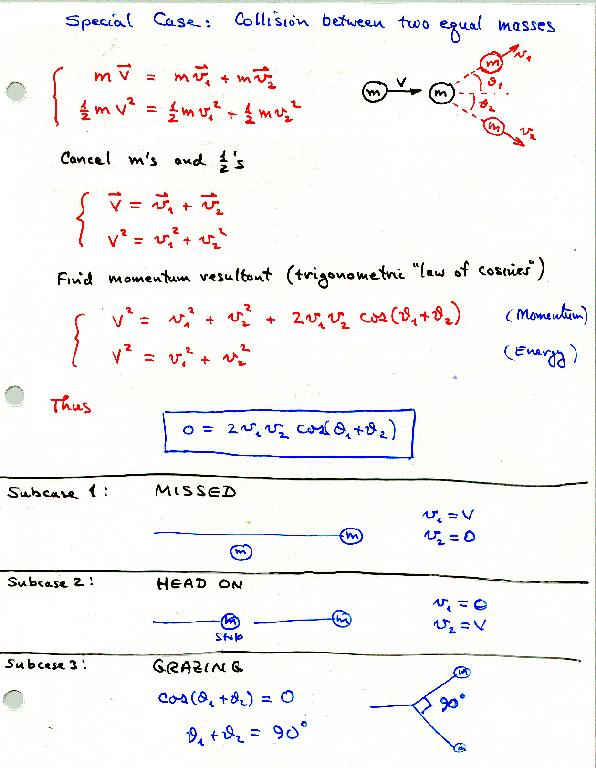 Special Case: Collision between two equal masses
m V⃗ = m v⃗₁ + m v⃗₂
½ m V² = ½ m v₁² + ½ m v₂²
m V m m v₁ ϑ₁ ϑ₂ m v₂
Cancel m's and ½'s
V⃗ = v⃗₁ + v⃗₂
V² = v₁² + v₂²
Find momentum resultant (trigonometric "law of cosines")
V² = v₁² + v₂² + 2v₁v₂ cos(ϑ₁+ϑ₂) (Momentum)
V² = v₁² + v₂² (Energy)
Thus
0 = 2v₁v₂ cos(ϑ₁+ϑ₂)
Subcase 1: MISSED
m m
v₁ = V
v₂ = 0
Subcase 2: HEAD ON
m m
stop
v₁ = 0
v₂ = V
Subcase 3: GRAZING
cos(ϑ₁+ϑ₂) = 0
ϑ₁ + ϑ₂ = 90°
m 90°